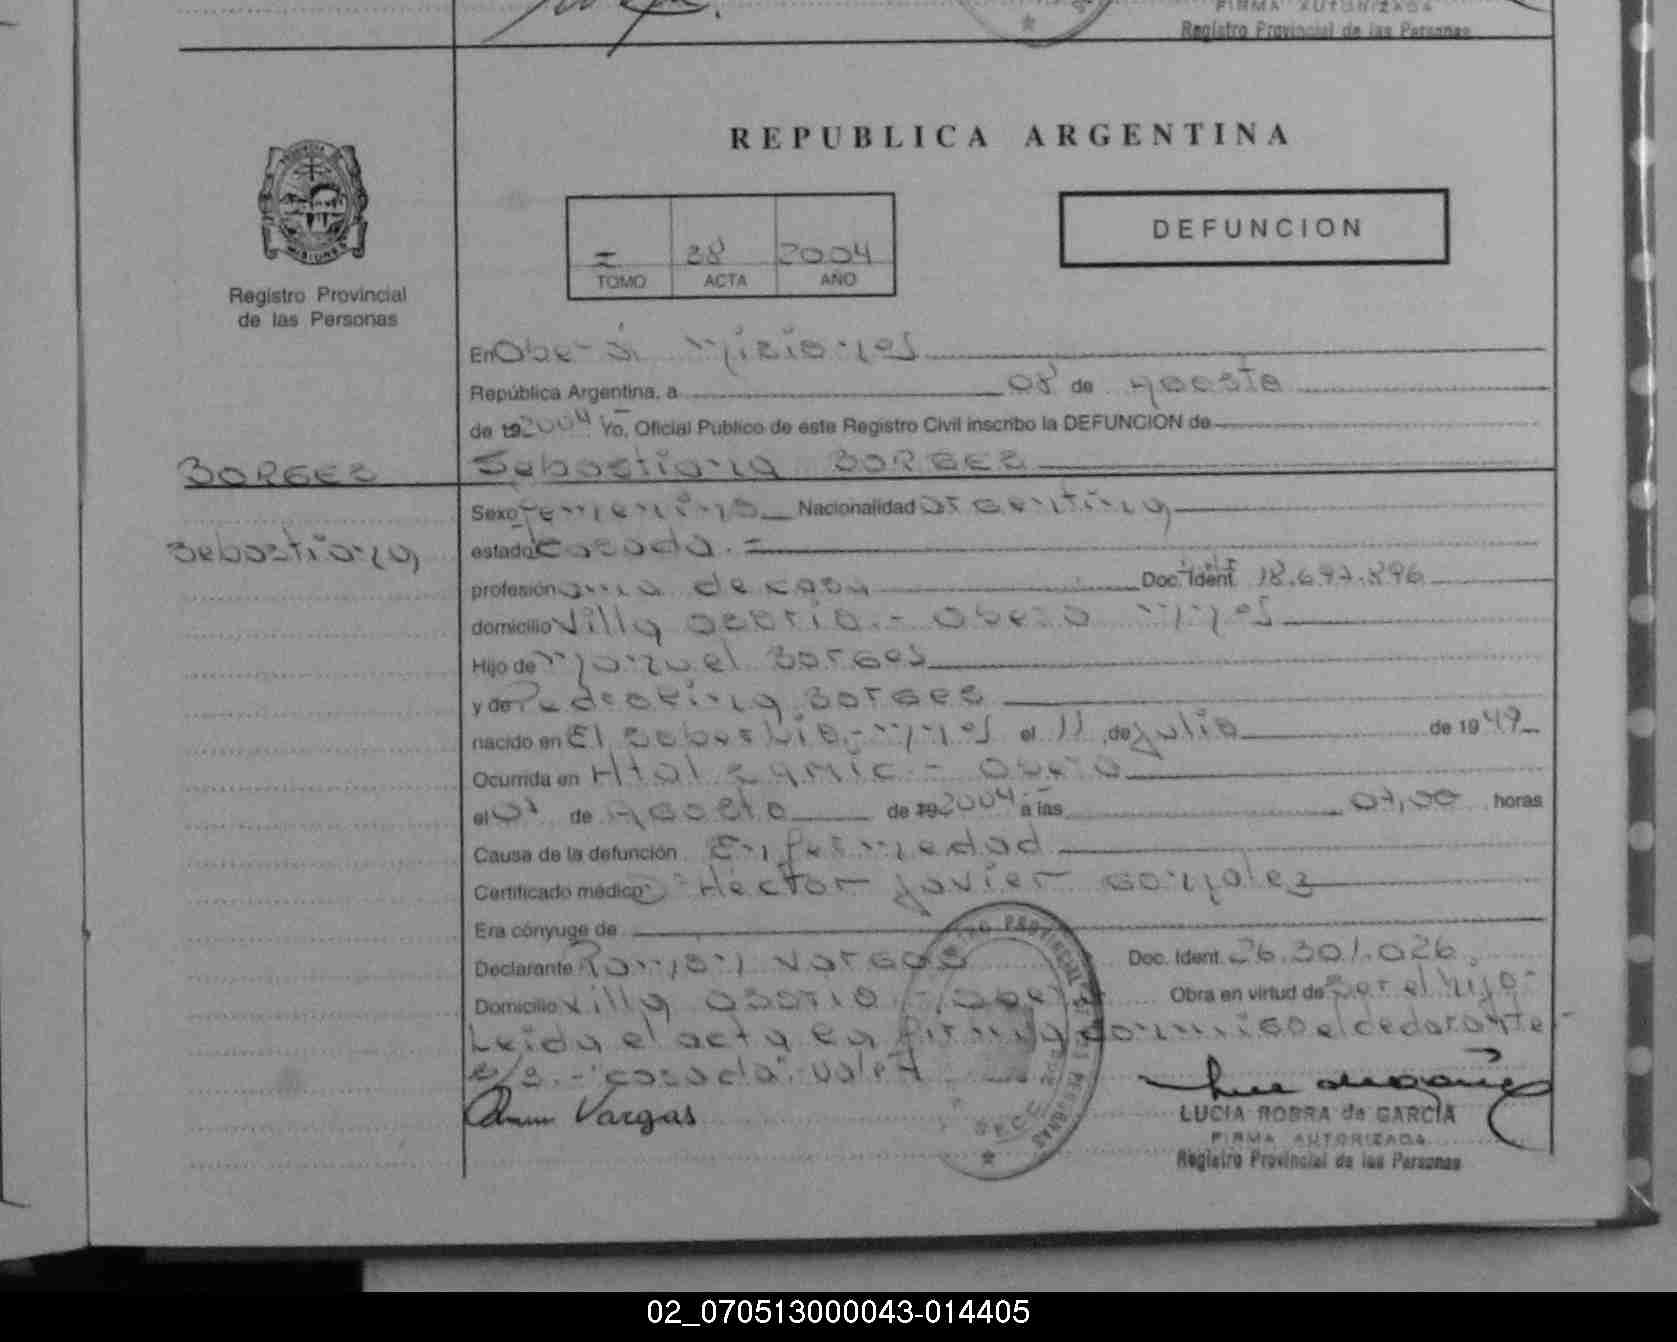 FIRMA AUTORIZADA
Registro Provincial de las Personas
REPUBLICA ARGENTINA
MISIONES
Registro Provincial
de las Personas
I 38 2004
TOMO ACTA AÑO
DEFUNCION
En Oberá Misiones
República Argentina, a 08 de Agosto
de 19 2004 Yo, Oficial Publico de este Registro Civil inscribo la DEFUNCION de
BORGES Sebastiana BORGES
Sexo femenino Nacionalidad argentina
Sebastiana
estado casada.=
profesión ama de casa Doc. Ident. 18.697.896
domicilio Villa Osorio.- Oberá Mnes
Hijo de Manuel BORGES
y de BORGES
nacido en El Mnes el 11 de julio de 19 49
Ocurrida en Htal SAMIC.- Oberá
el 07 de Agosto de 19 2004 a las 07,00 horas
Causa de la defunción Enfermedad
Certificado médico: Hector Javier Gonzalez
Era cónyuge de
Declarante Ramon VARGAS Doc. Ident. 26.301.026
Domicilio Villa Osorio - Oberá Obra en virtud de Ser el hijo-
Leida el acta la firma conmigo el declarante-
s/r.- "casada": vale
Vargas
REGISTRO PROVINCIAL DE LAS PERSONAS
SECC.
LUCIA ROBRA de GARCIA
FIRMA AUTORIZADA
Registro Provincial de las Personas
02_070513000043-014405